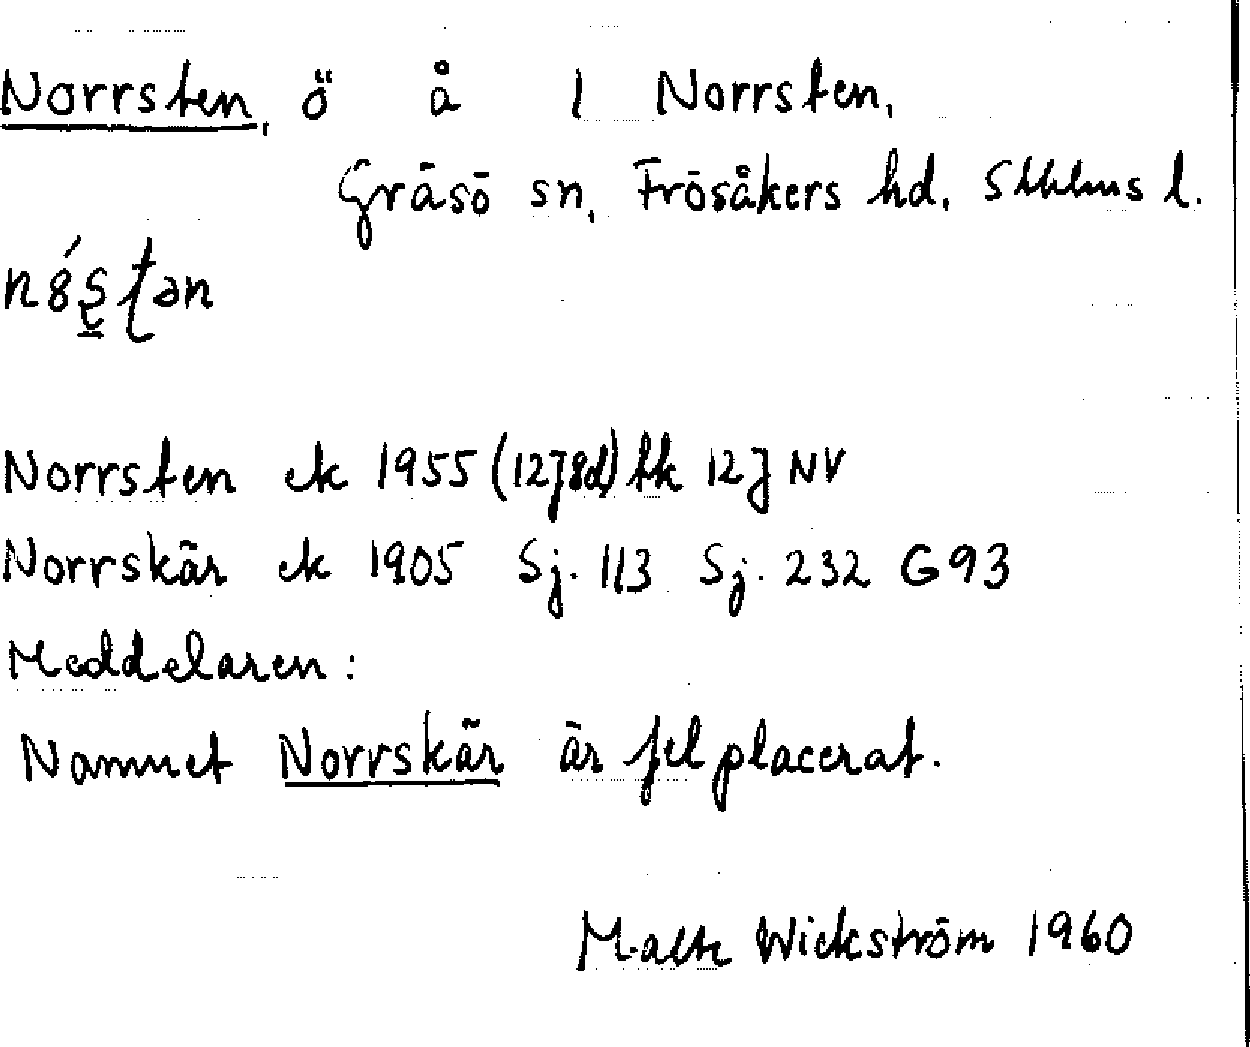 Norrsten, ö å l Norrsten,
Gräsö sn, Frösåkers hd, Sthlms l.
Norrsten ek 1955 (12J8d) tk 12J NV
Norrskär ek 1905 Sj. 113 Sj. 232 G93
Meddelaren:
Namnet Norrskär är fel placerat.
Malte Wickström 1960